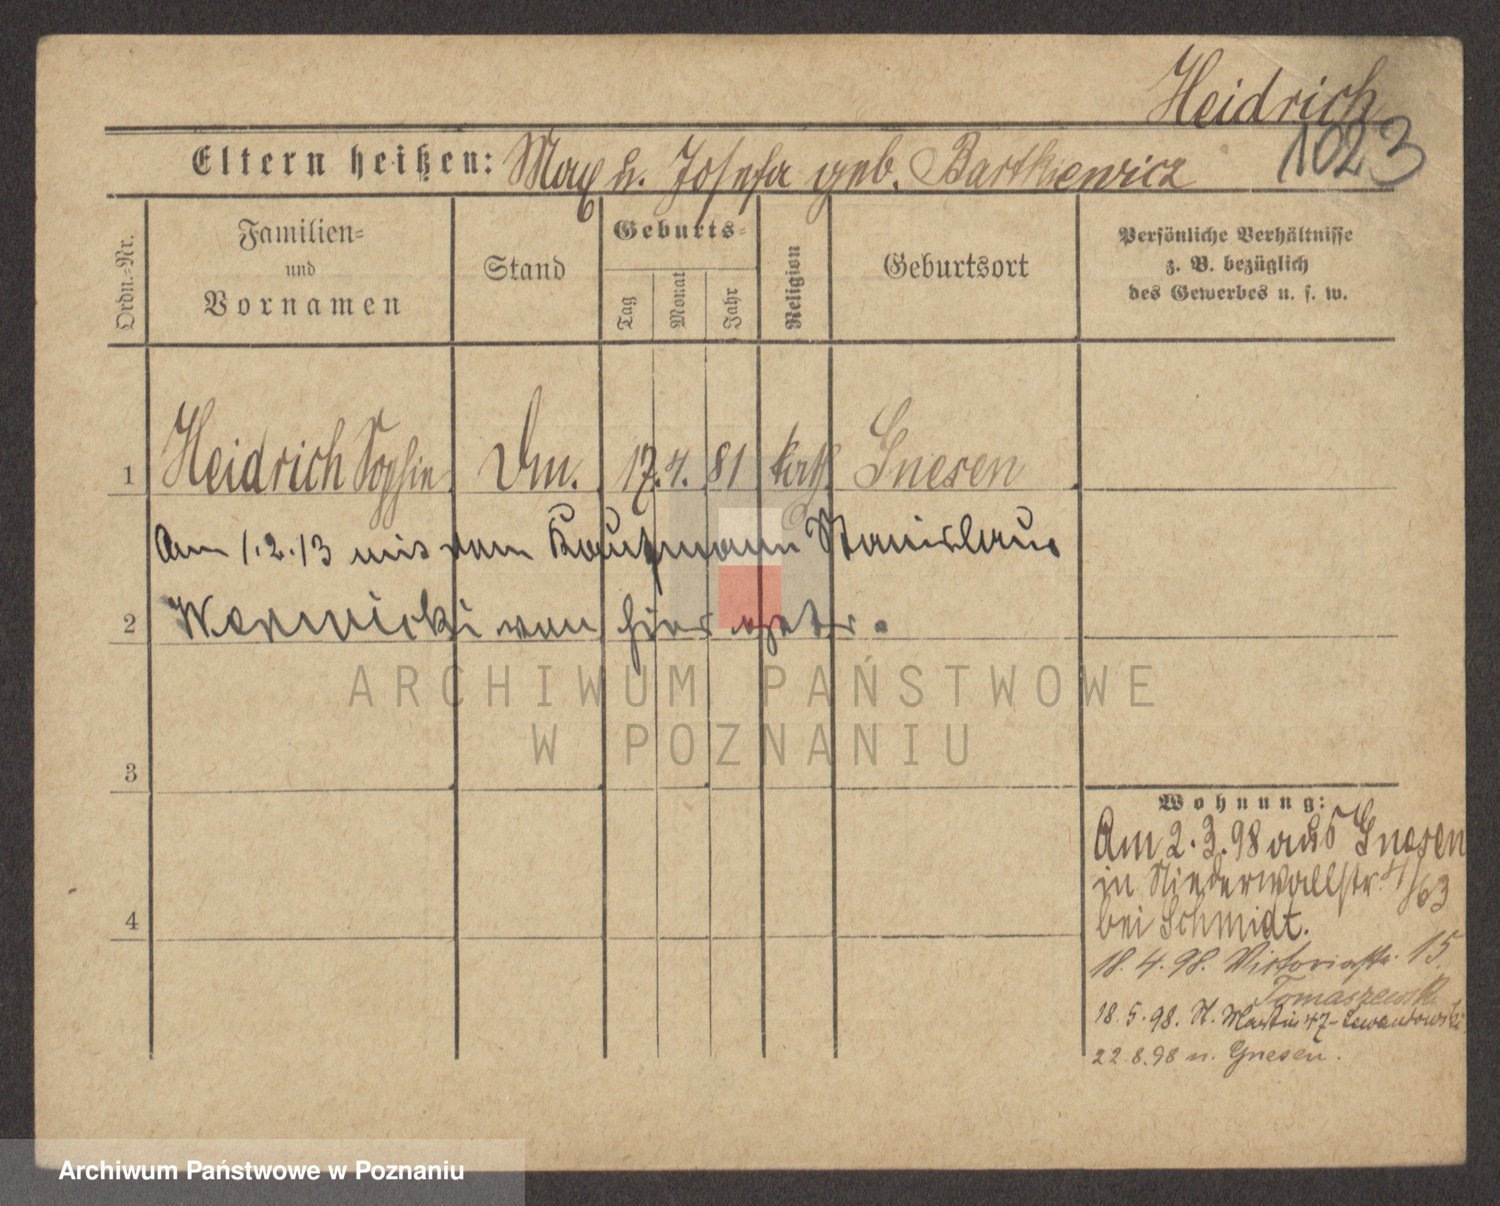 Heidrich
1023
Eltern heißen: Max u. Josefa geb. Bartkiewicz
Ordn.-Nr.
Familien-
und
Vornamen
Stand
Geburts-
Tag
Monat
Jahr
Religion
Geburtsort
Persönliche Verhältnisse
z. B. bezüglich
des Gewerbes u. s. w.
1 Heidrich Sophie Dm. 17. 4. 81 kath Gnesen
Am 1.2.13 mit dem Kaufmann Stanislaus
2 von hier getr.
ARCHIWUM PAŃSTWOWE
W POZNANIU
3
4
Wohnung:
Am 2.3.98 aus Gnesen
in Niederwallstr. 4/63
bei Schmidt.
18.4.98. Victoriastr. 15.
Tomaszewski
18.5.98. St. Martin 47 - Lewandowski
22.8.98 n. Gnesen.
Archiwum Państwowe w Poznaniu